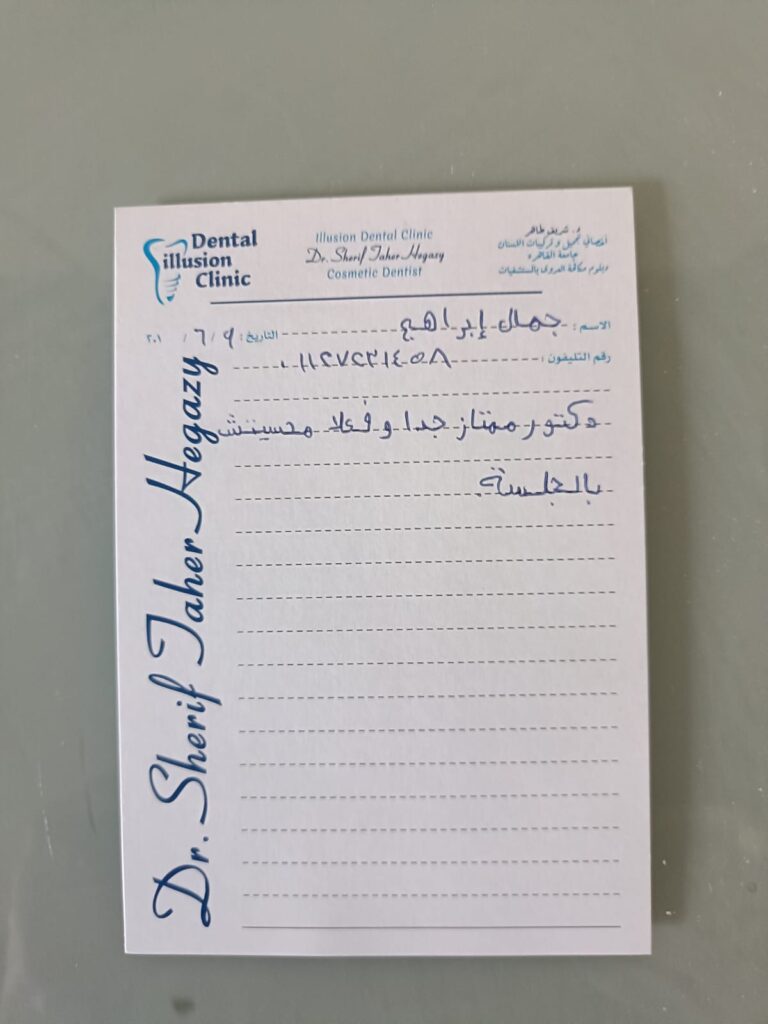 Dental
illusion
Clinic
Illusion Dental Clinic
Dr. Sherif Taher Hegazy
Cosmetic Dentist
د. شريف طاهر
أخصائي تجميل و تركيبات الاسنان
جامعة القاهره
دبلوم مكافحة العدوى بالمستشفيات
الاسم : جمال إبراهيم
التاريخ : ٩ / ٦ / ٢٠١
رقم التليفون :
دكتور ممتاز جدا و فعلا محسيتش
بالجلسة.
Dr. Sherif Taher Hegazy